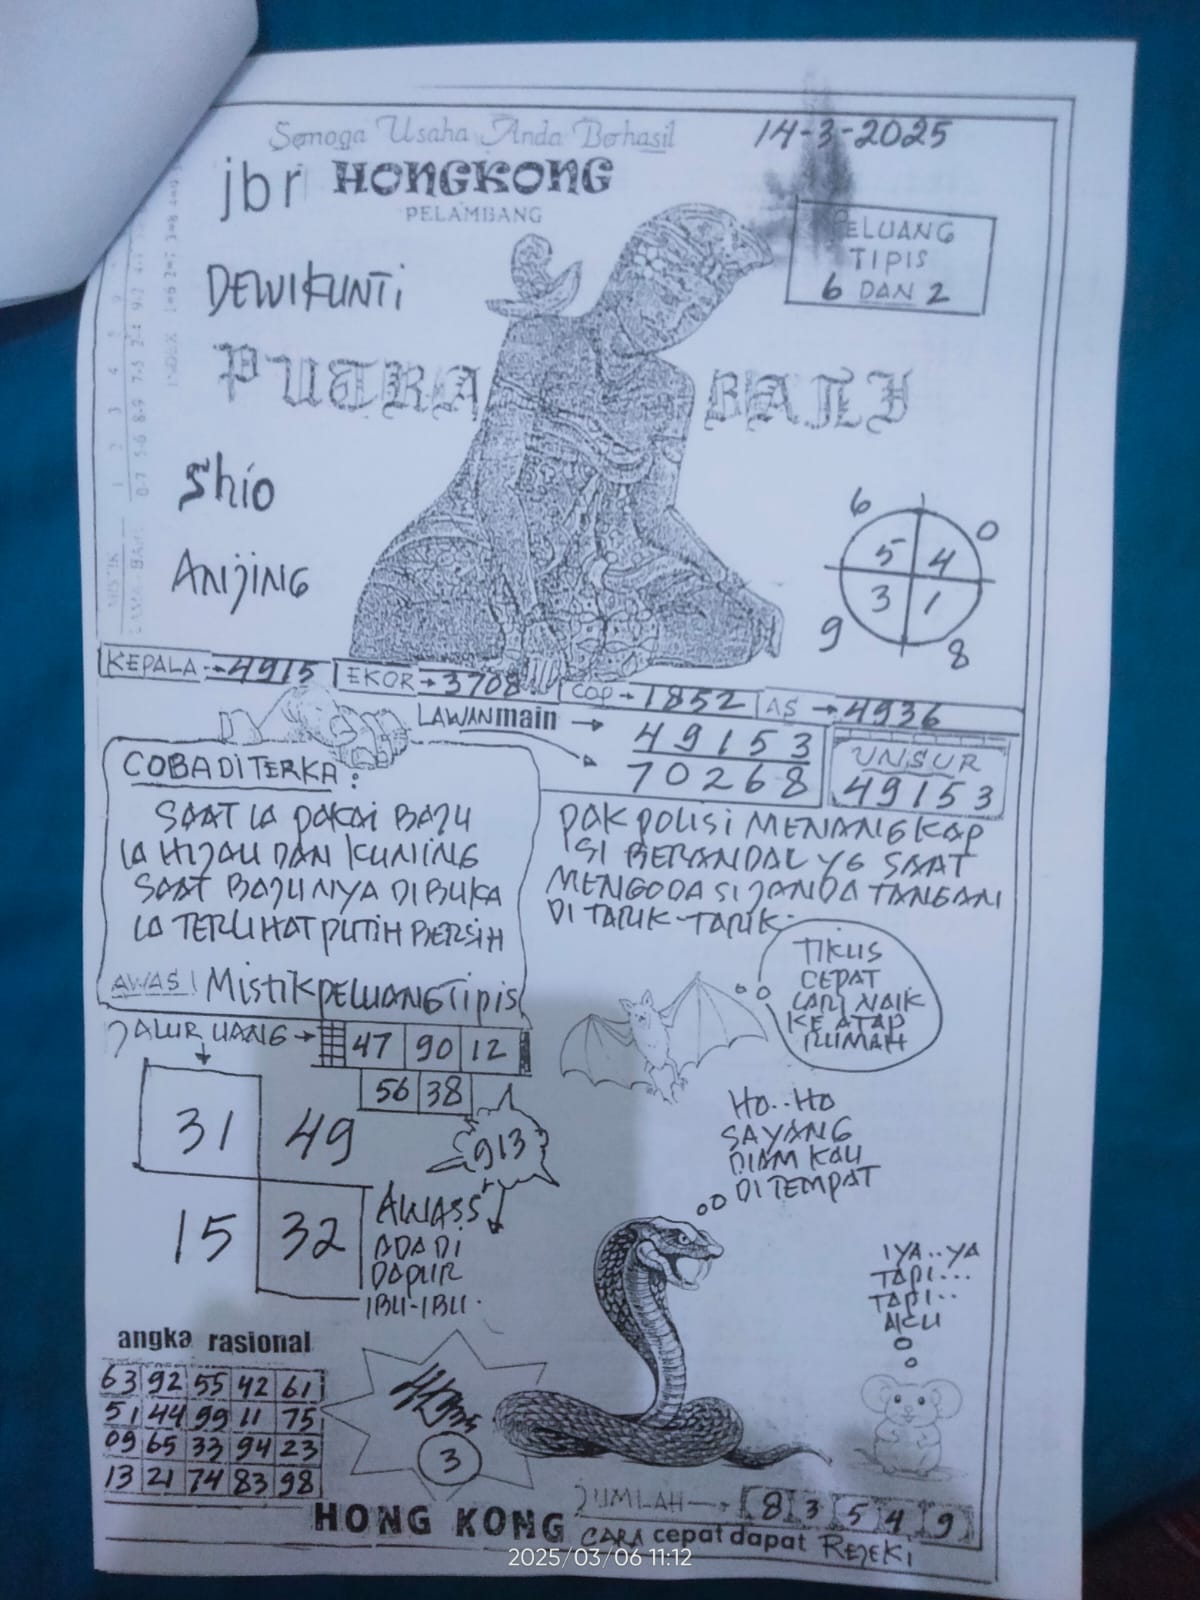 Semoga Usaha Anda Berhasil
14-3-2025
jbr HONGKONG
PELAMBANG
PELUANG
TIPIS
6 DAN 2
DEWI KUNTI
PUTRA BALI
Shio
ANJING
6 0
5 4
3 1
9 8
KEPALA → 4915 EKOR → 3708 COP → 1852 AS → 4936
LAWAN main → 49153
70268
UNSUR
49153
COBA DITERKA :
SAAT IA PAKAI BAJU
IA HIJAU DAN KUNING
SAAT BAJUNYA DIBUKA
IA TERLIHAT PUTIH BERSIH
AWAS! Mistik PELUANG Tipis
PAK POLISI MENANGKAP
SI BERANDAL YG SAAT
MENGODA SI JANDA TANGAN
DI TARIK-TARIK
TIKUS
CEPAT
LARI NAIK
KE ATAP
RUMAH
JALUR UANG → 47 90 12
56 38
31 49
15 32
913
AWASS
ADA DI
DAPUR
IBU-IBU.
HO..HO
SAYANG
DIAM KAU
DI TEMPAT
IYA..YA
TAPI...
TAPI..
AKU
angka rasional
63 92 55 42 61
51 44 99 11 75
09 65 33 94 23
13 21 74 83 98
3
JUMLAH → 8 3 5 4 9
HONG KONG CARA cepat dapat REJEKI
2025/03/06 11:12